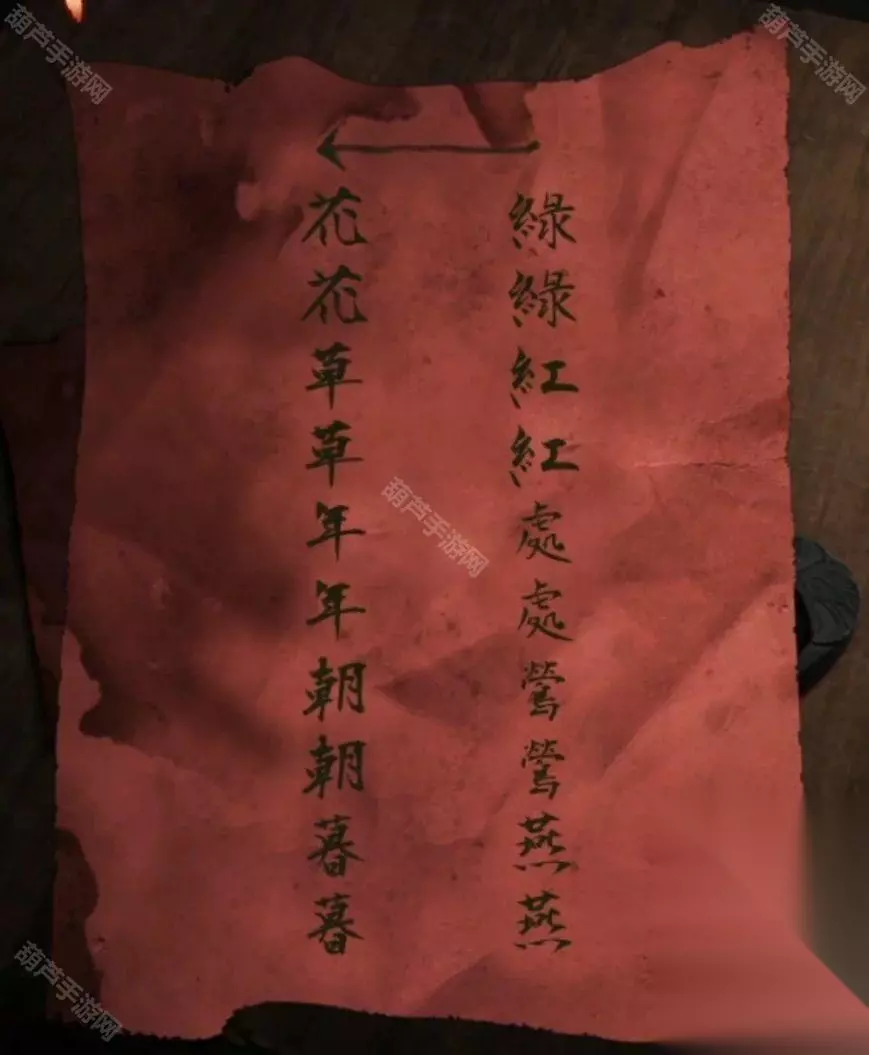 綠綠紅紅處處鶯鶯燕燕
花花草草年年朝朝暮暮
葫芦手游网
葫芦手游网
葫芦手游网
葫芦手游网